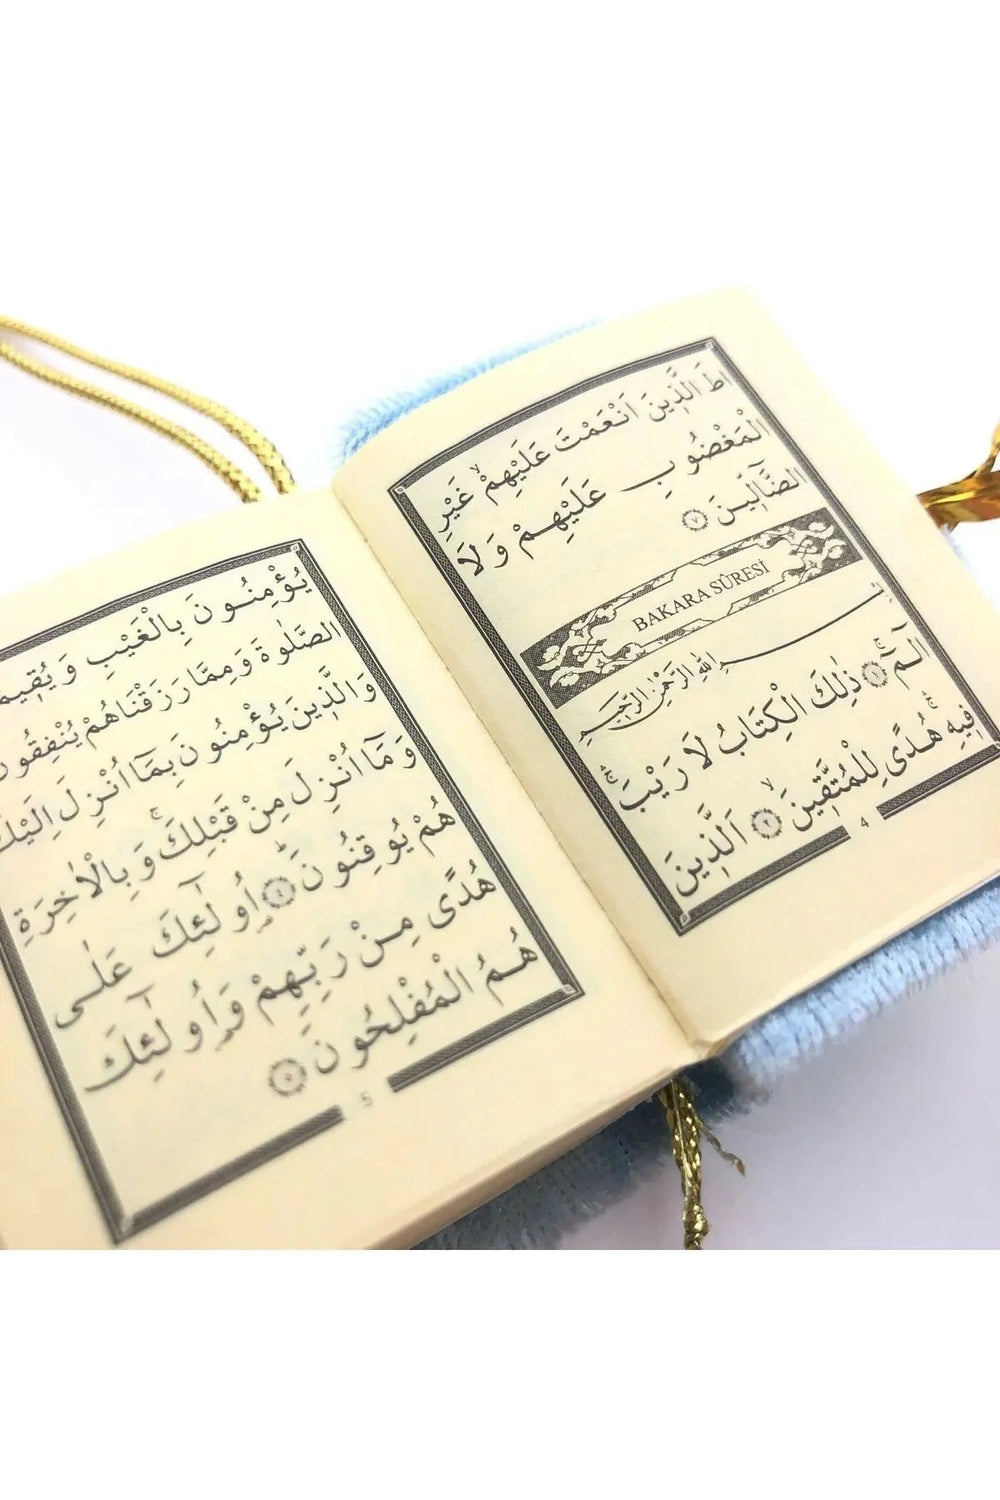 اطَ الَّذ۪ينَ اَنْعَمْتَ عَلَيْهِمْۙ غَيْرِ
الْمَغْضُوبِ عَلَيْهِمْ وَلَا
الضَّٓالّ۪ينَ ٧
BAKARA SÛRESİ
بِسْمِ اللهِ الرَّحْمٰنِ الرَّح۪يمِ
الٓمٓۚ ١ ذٰلِكَ الْكِتَابُ لَا رَيْبَۚۛ
ف۪يهِۚۛ هُدًى لِلْمُتَّق۪ينَۙ ٢ اَلَّذ۪ينَ
4
يُؤْمِنُونَ بِالْغَيْبِ وَيُق۪يمُ
الصَّلٰوةَ وَمِمَّا رَزَقْنَاهُمْ يُنْفِقُونَ
وَالَّذ۪ينَ يُؤْمِنُونَ بِمَٓا اُنْزِلَ اِلَيْكَ
وَمَٓا اُنْزِلَ مِنْ قَبْلِكَۚ وَبِالْاٰخِرَةِ
هُمْ يُوقِنُونَۜ ٤ اُو۬لٰٓئِكَ عَلٰى
هُدًى مِنْ رَبِّهِمْ وَاُو۬لٰٓئِكَ
هُمُ الْمُفْلِحُونَ ٥
5